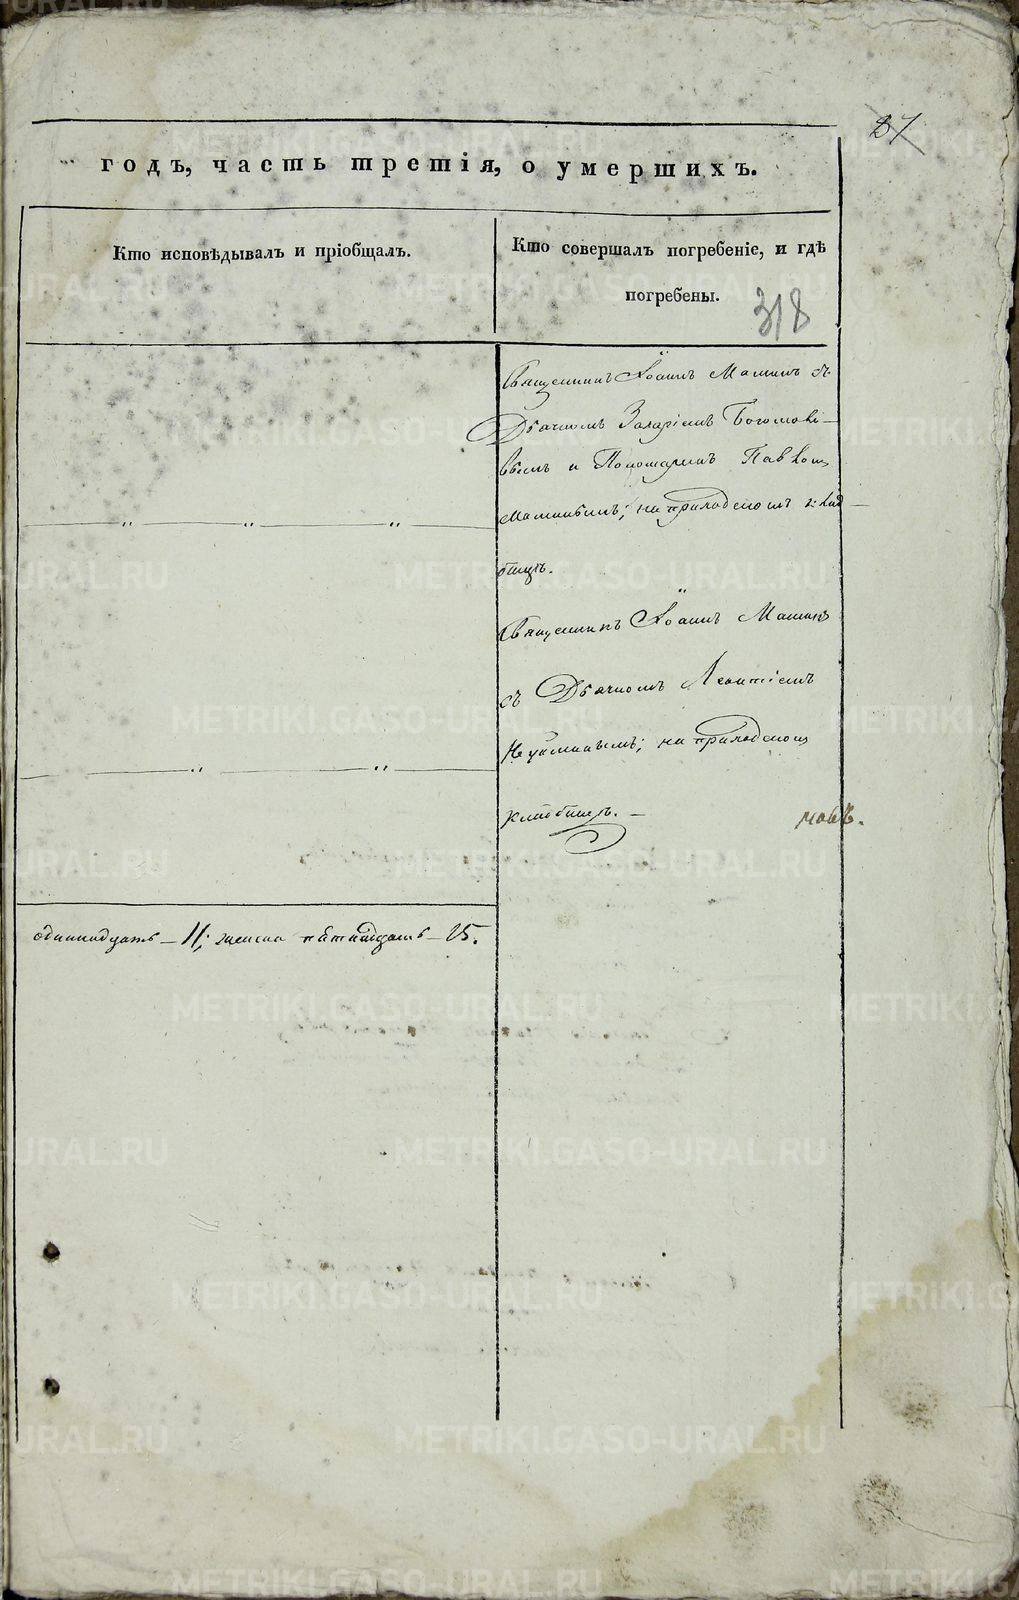 годъ, часть третія, о умершихъ.
Кто исповѣдывалъ и пріобщалъ.
Кто совершалъ погребеніе, и гдѣ
погребены.
318
Священникъ Іоаннъ Маминъ съ
Дьячкомъ Захаріемъ
и Пономаремъ Павломъ
Маминымъ; на приходскомъ клад-
бищѣ.
Священникъ Іоаннъ Маминъ
съ Дьячкомъ Леонтіемъ
на приходскомъ
кладбищѣ. —
одиннадцать — 11; женска пятнадцать — 15.
METRIKI.GASO-URAL.RU